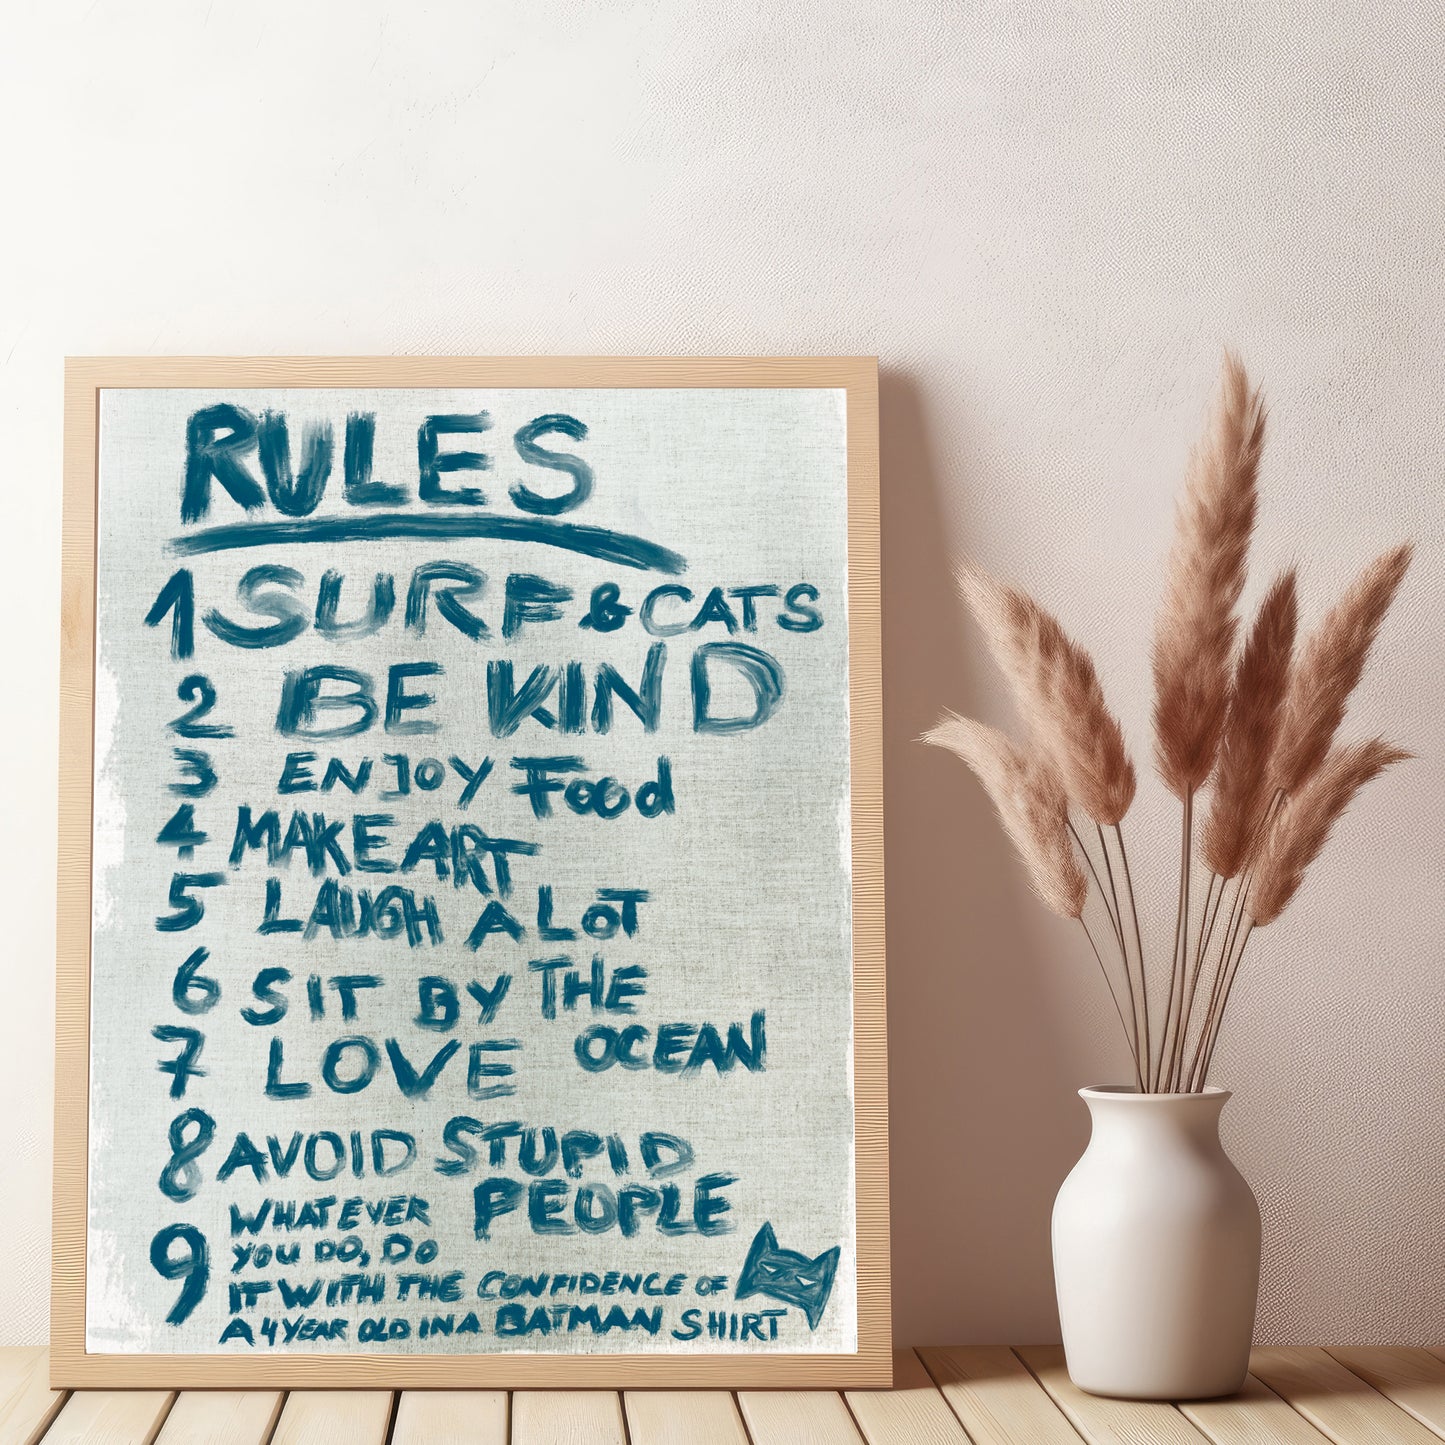 RULES
1 SURF & CATS
2 BE KIND
3 ENJOY FOOD
4 MAKE ART
5 LAUGH A LOT
6 SIT BY THE
OCEAN
7 LOVE
8 AVOID STUPID
PEOPLE
9 WHATEVER
YOU DO, DO
IT WITH THE CONFIDENCE OF
A 4 YEAR OLD IN A BATMAN SHIRT